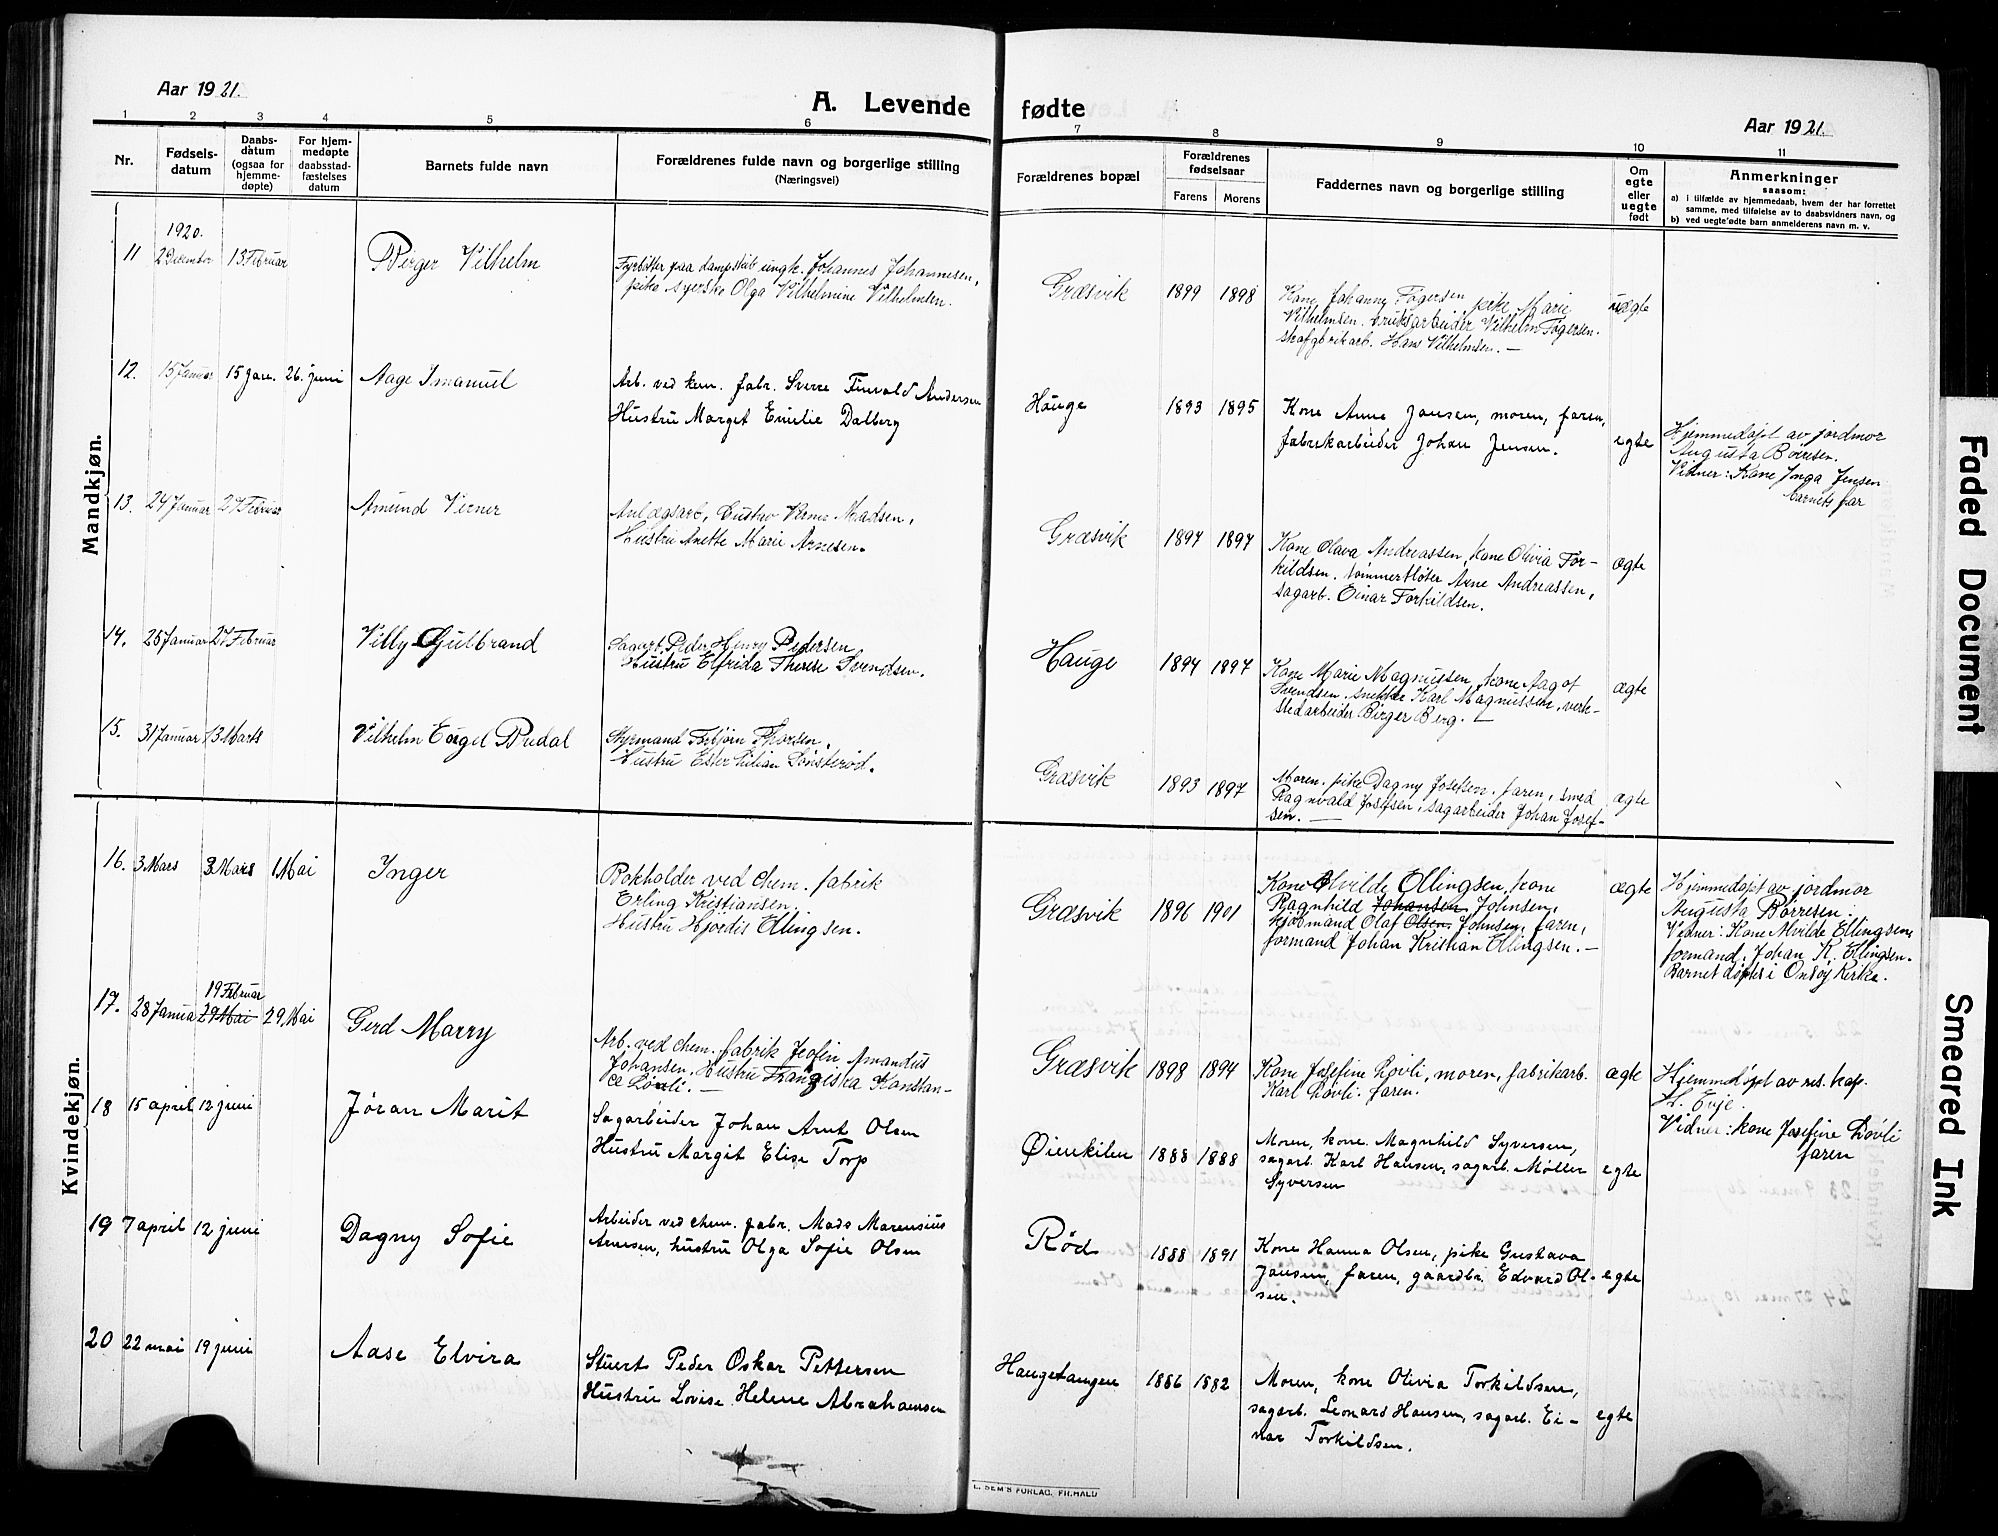 Aar 1921.
A. Levende fødte
Aar 1921.
1 2 3 4 5 6 7 8 9 10 11
Nr.
Fødsels-
datum
Daabs-
datum
(ogsaa for
hjemme-
døpte)
For hjem-
medøpte
daabsstad-
fæstelses
datum
Barnets fulde navn
Forældrenes fulde navn og borgerlige stilling
(Næringsvei)
Forældrenes bopæl
Forældrenes
fødselsaar
Farens Morens
Faddernes navn og borgerlige stilling
Om
egte
eller
uegte
født
Anmerkninger
saasom:
a) i tilfælde av hjemmedaab, hvem der har forrettet
samme, med tilføielse av to daabsvidners navn, og
b) ved uegte fødte barn anmelderens navn m. v.
Mandkjøn.
1920.
11 2 December 13 Februar Birger Vilhelm
Fyrbøter paa dampskib ungk. Johannes Johannesen,
pike syerske Olga Vilhelmine Vilhelmsen.
Græsvik 1899 1898
Kone Johanne Fögersen pike Marie
Vilhelmsen. bruksarbeider Vilhelm Fögersen.
skofabrikarb. Hans Vilhelmsen. —
uægte
12. 15 Januar 15 Jan. 26. juni Aage Imanuel
Arb. ved kem. fabr. Sverre Finvald Andersen
Hustru Margit Emilie Dalberg
Hauge 1893 1895
Kone Anne Jansen, moren, faren,
fabrikarbeider Johan Jensen.
egte
Hjemmedøpt av jordmor
Augusta Börresen.
Vidner: Kone Inga Jensen
barnets far
13. 24 Januar 27 Februar Amund Verner
Anlægsarb. Gustav Verner Madsen,
Hustru Anette Marie Arnesen.
Græsvik 1897 1897
Kone Olava Andreassen, kone Olivia Tor-
kildsen. tømmerfløter Arne Andreassen,
sagarb. Einar Torkildsen.
ægte
14. 25 Januar 27 Februar Villy Gulbrand
Sagarb. Peder Henry Pedersen
Hustru Elfrida Therese Svendsen.
Hauge 1894 1897
Kone Marie Magnussen, kone Aagot
Svendsen. snekker Karl Magnussen, verk-
stedarbeider Birger Berg. —
ægte
15. 31 Januar 13 Marts Vilhelm Engel Bredal
Styrmand Torbjørn Thorsen.
Hustru Ester Lilian Sønsterød.
Græsvik 1893 1897
Moren. pike Dagny Josefsen. faren, smed
Ragnvald Josefsen, sagarbeider Johan Josef-
sen. —
ægte
Kvindekjøn.
16. 3 Mars 3 Mars 1 Mai Inger
Bokholder ved chem. fabrik
Erling Kristiansen.
Hustru Hjördis Ellingsen.
Græsvik 1896 1901
Kone Alvilde Ellingsen, kone
Ragnhild Johansen Johnsen,
kjøbmand Olaf Olsen. Johnsen, faren,
formand Johan Kristian Ellingsen. —
ægte
Hjemmedøpt av jordmor
Augusta Börresen.
Vidner: Kone Alvilde Ellingsen,
formand, Johan K. Ellingsen.
Barnet døptes i Onsøy Kirke.
19 Februar
17. 28 Januar 29 Mai 29 Mai Gerd Marry
Arb. ved chem. fabrik Josefin Amandus
Johansen. Hustru Franziska Konstan-
ce Løvli. —
Græsvik 1898 1894
Kone Josefine Løvli, moren, fabrikarb.
Karl Løvli. faren.
ægte
Hjemmedøpt av res. kap.
H. Evje.
Vidner: kone Josefine Løvli
faren
18 15 april 12 juni Jøran Marit
Sagarbeider Johan Arnt Olsen
Hustru Margit Elise Torp
Øienkilen 1888 1888
Moren, kone Magnhild Syversen,
sagarb. Karl Hansen, sagarb. Møller
Syversen
egte
19 7 april 12 juni Dagny Sofie
Arbeider ved chem. fabr. Mads Marensius
Arnesen, hustru Olga Sofie Olsen
Rød 1888 1891
Kone Hanna Olsen, pike Gustava
Jansen, faren, gaardbr. Edvard Ol-
sen.
egte
20 22 mai 19 juni Aase Elvira
Stuert Peder Oskar Pettersen
Hustru Lovise Helene Abrahamsen
Haugetangen 1886 1882
Moren, kone Olivia Torkildsen,
sagarb. Leonard Hansen, sagarb. Ei-
nar Torkildsen.
egte
E. SEM'S FORLAG, FR.HALD
Faded Document
Smeared Ink